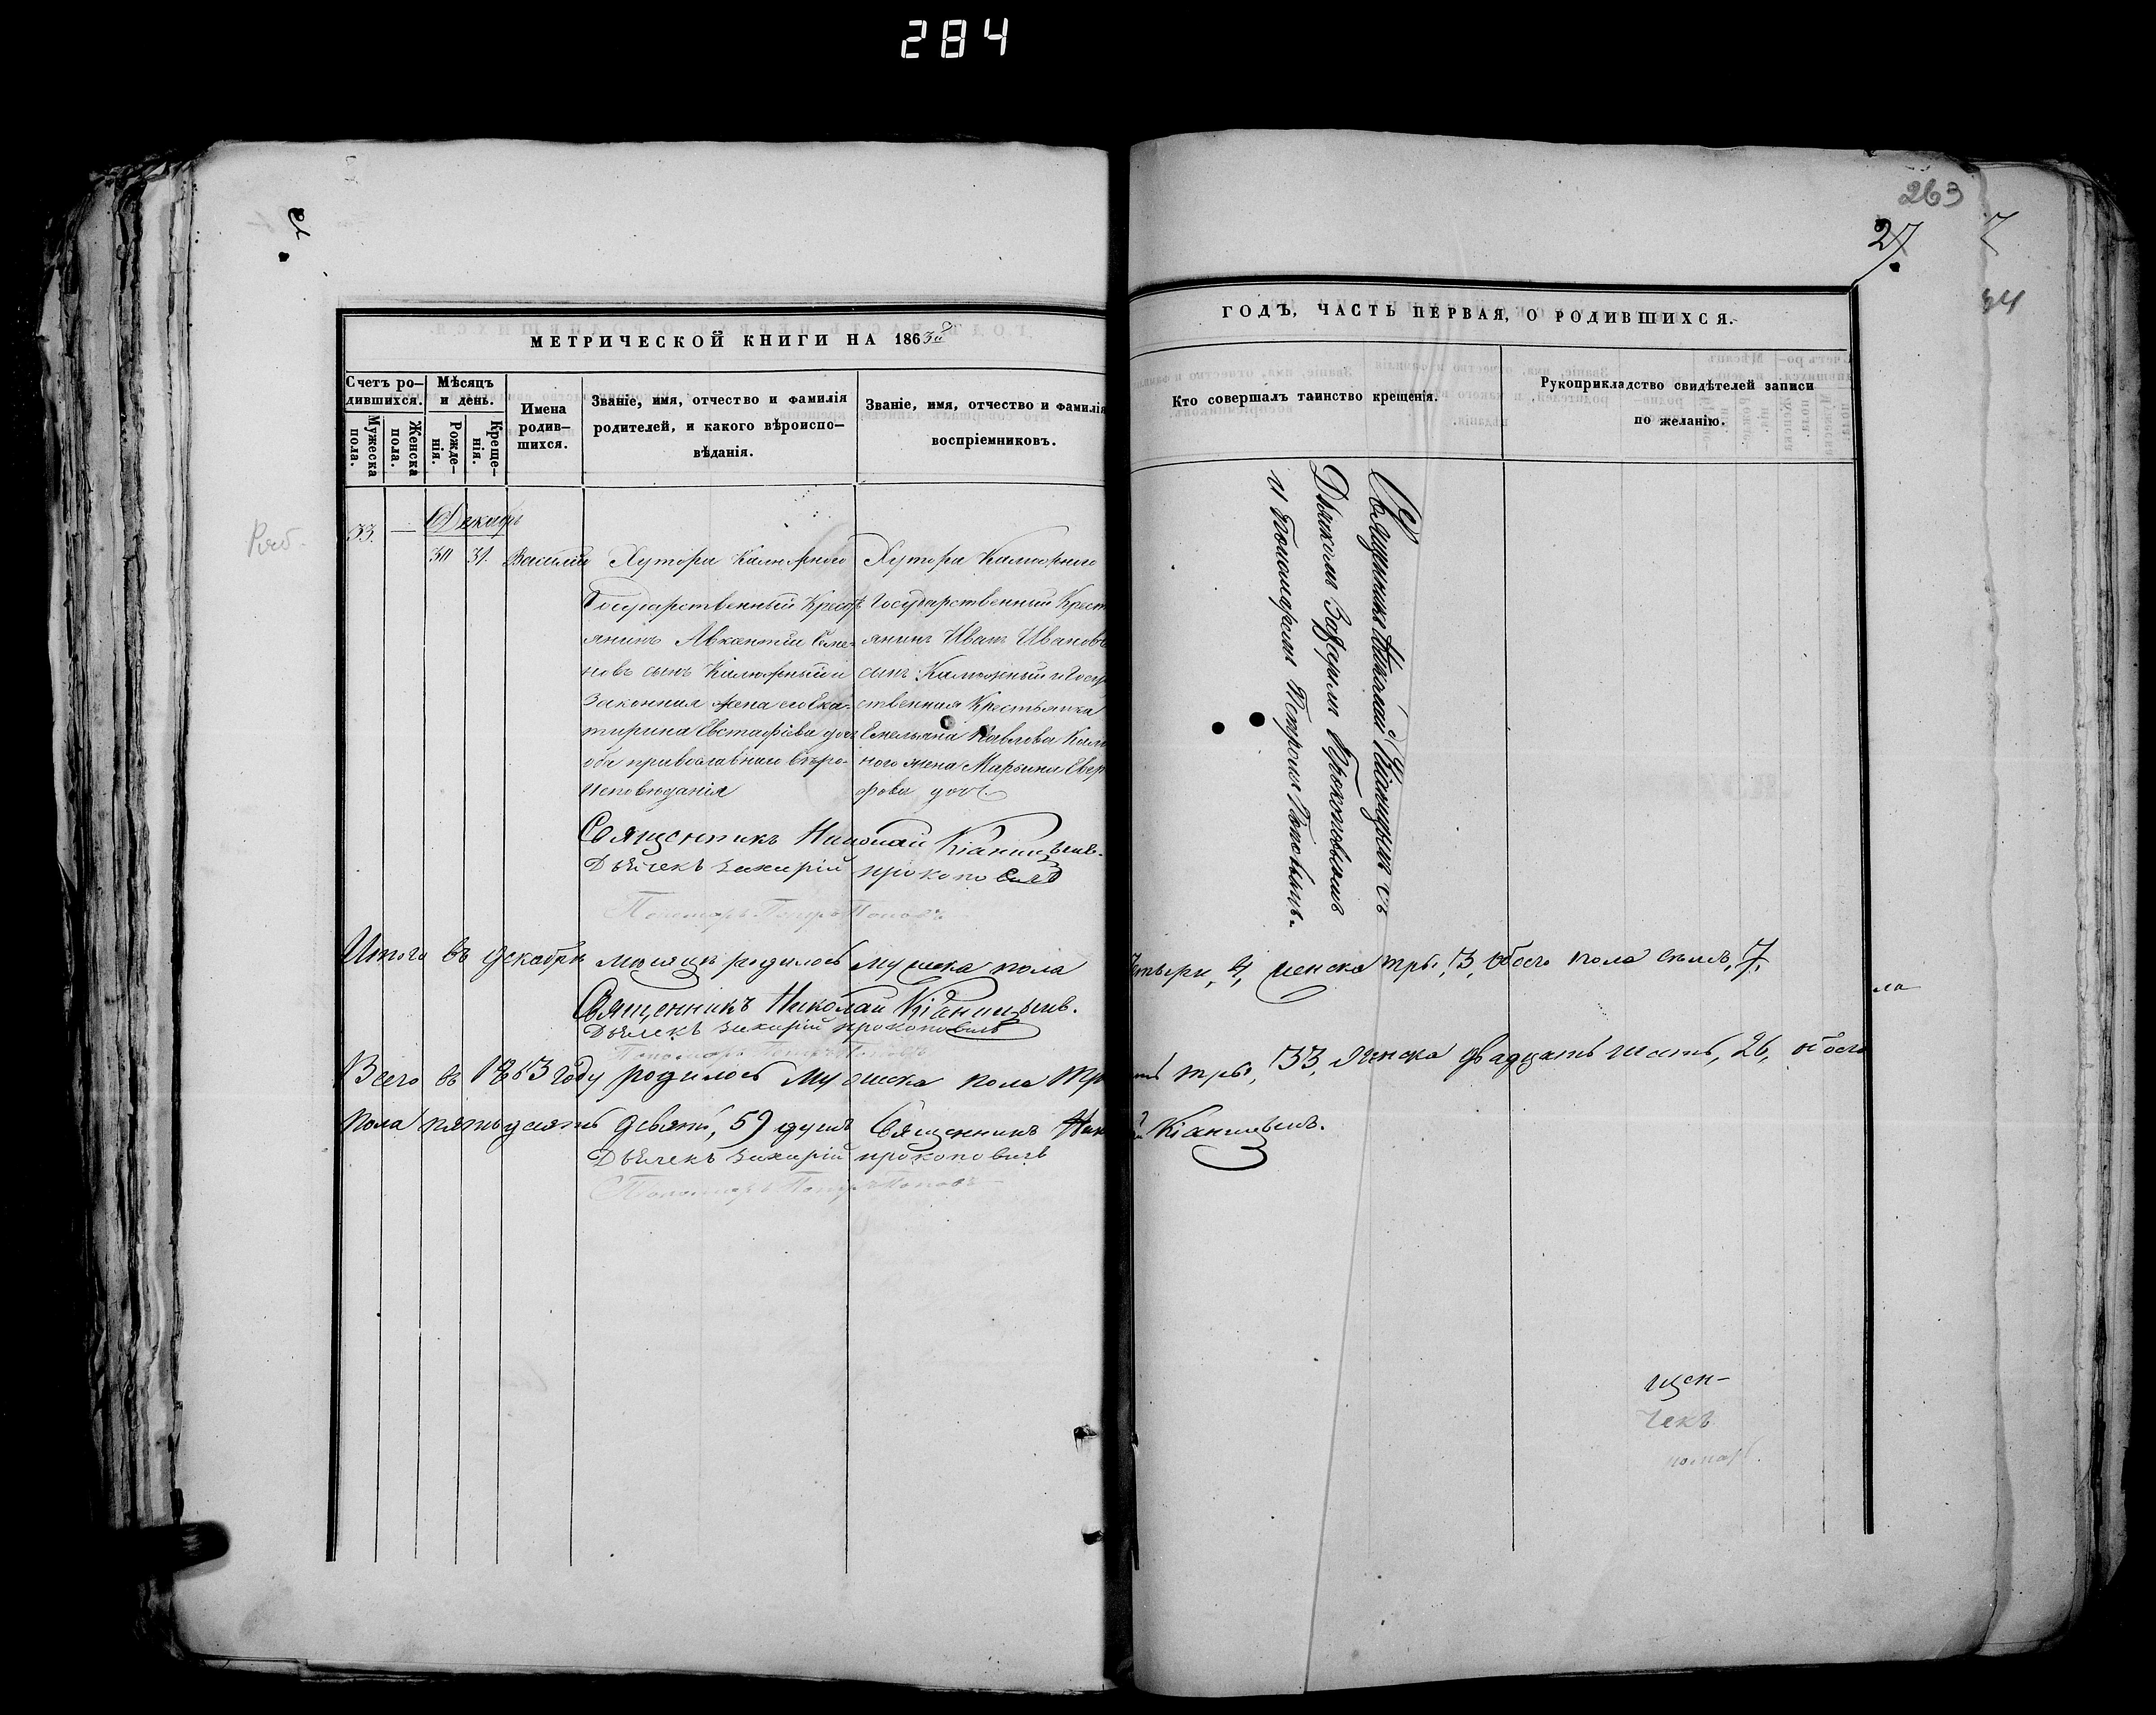 284
263
27.
34
МЕТРИЧЕСКОЙ КНИГИ НА 1863й
ГОДЪ, ЧАСТЬ ПЕРВАЯ, О РОДИВШИХСЯ.
Счетъ ро-
дившихся.
Мужеска
пола.
Женска
пола.
Мѣсяцъ
и день.
Рожде-
нія.
Креще-
нія.
Имена
родив-
шихся.
Званіе, имя, отчество и фамилія
родителей, и какого вѣроиспо-
вѣданія.
Званіе, имя, отчество и фамилія
воспріемниковъ.
Кто совершалъ таинство крещенія.
Рукоприкладство свидѣтелей записи
по желанію.
33. —
Декабрь
30 31. Василій
Хутора Калюжного
Государственный Крест
янинъ Авксентій Семе-
новъ сынъ Калюжный и
Законная жена его Ека-
тирина Евстафіева доч
оба православнаго вѣро-
исповѣданія
Хутора Калюжного
Государственный Крест
янинъ Иванъ Ивановъ
сынъ Калюжный и Госуд
ственная Крестьянка
Емельяна Павлова Калю
ного жена Марьина
дочь
Священникомъ Николаемъ Кіаницинымъ съ
Дьякомъ Захаріемъ Прокоповичемъ
и Пономаремъ Петромъ Поповымъ.
Священникъ Николай Кіаницынъ.
Дьячекъ Захарій Прокоповичъ
Пономарь Петръ Поповъ
Итого въ декабрѣ мѣсяцѣ родилось мужеска пола четыри, 4, женска три, 3, обоего пола семь, 7,
Священникъ Николай Кіаницынъ.
Дьячекъ Захарій Прокоповичъ
Пономарь Петръ Поповъ
Всего въ 1863 году родилось мужеска пола три, 33, женска двадцать шесть, 26, обоего
пола пятьдесятъ девять, 59 душъ Священникъ Кіаницынъ.
Дьячекъ Захарій Прокоповичъ
Пономарь Петръ Поповъ
щен-
чекъ
номарь.